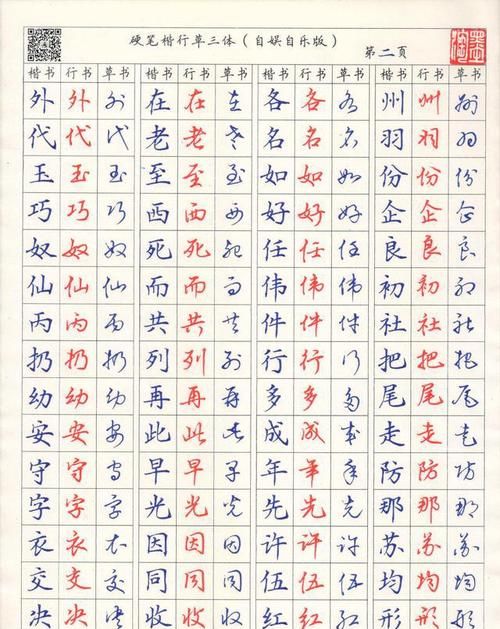 硬笔楷行草三体（自娱自乐版）
第二页
楷书 行书 草书 楷书 行书 草书 楷书 行书 草书 楷书 行书 草书
外 外 外 在 在 在 各 各 各 州 州 州
代 代 代 老 老 老 名 名 名 羽 羽 羽
玉 玉 玉 至 至 至 如 如 如 份 份 份
巧 巧 巧 西 西 西 好 好 好 企 企 企
奴 奴 奴 死 死 死 任 任 任 良 良 良
仙 仙 仙 而 而 而 伟 伟 伟 初 初 初
丙 丙 丙 共 共 共 件 件 件 社 社 社
扔 扔 扔 列 列 列 行 行 行 把 把 把
幼 幼 幼 再 再 再 多 多 多 尾 尾 尾
安 安 安 此 此 此 成 成 成 走 走 走
守 守 守 早 早 早 年 年 年 防 防 防
字 字 字 光 光 光 先 先 先 那 那 那
衣 衣 衣 因 因 因 许 许 许 苏 苏 苏
交 交 交 同 同 同 伍 伍 伍 均 均 均
决 决 决 收 收 收 红 红 红 形 形 形